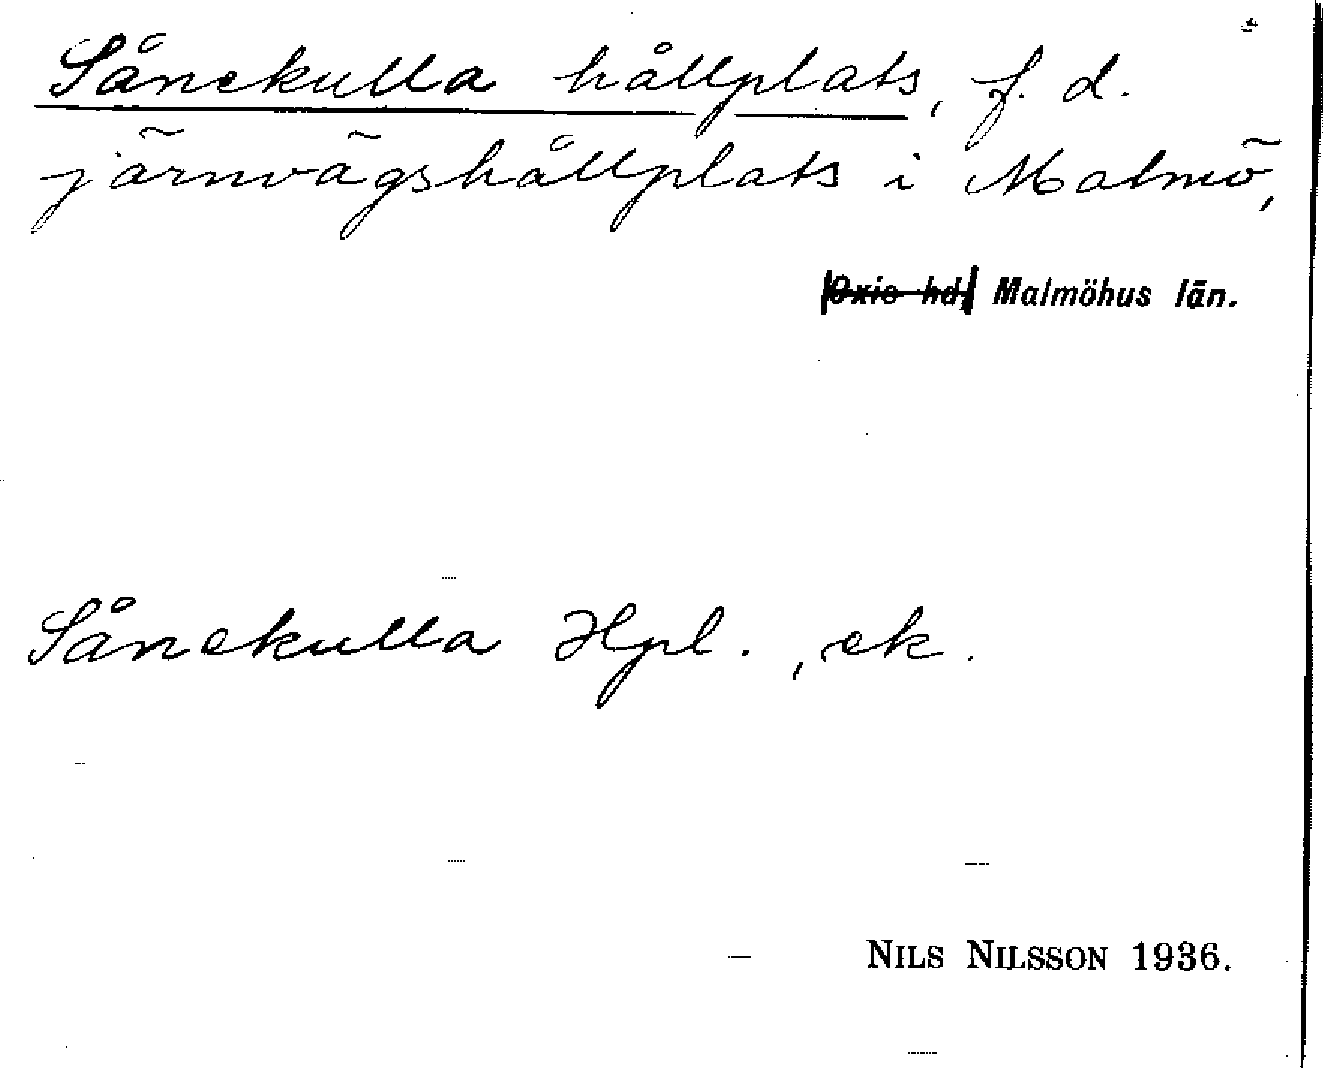 Sånekulla hållplats, f. d.
järnvägshållplats i Malmö,
Oxie hd. Malmöhus län.
Sånekulla Hpl., ek.
NILS NILSSON 1936.